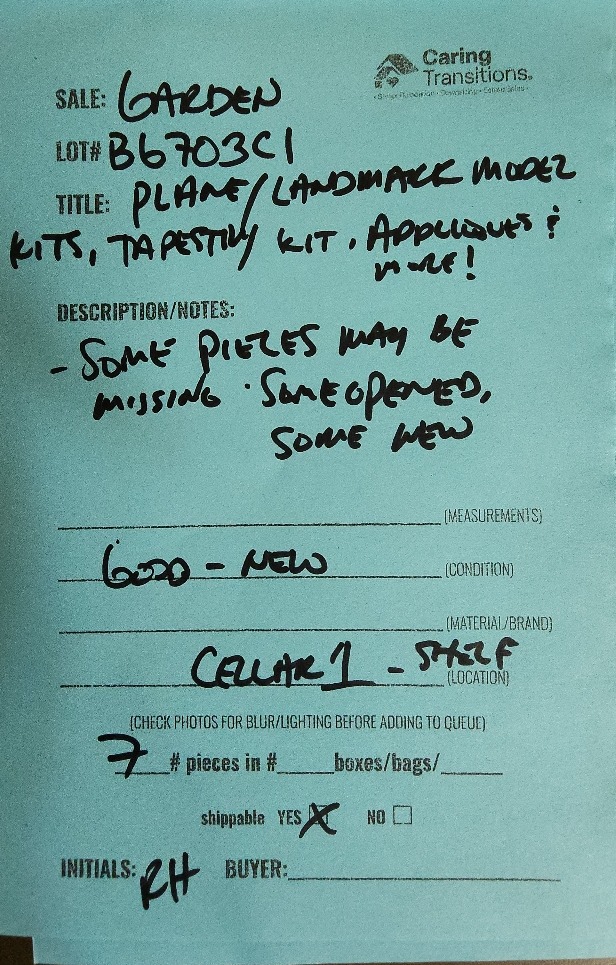 Caring
Transitions®
SALE: GARDEN
LOT# B6703C1
TITLE: PLANE/LANDMARK MODEL
KITS, TAPESTRY KIT, APPLIQUES &
MORE!
DESCRIPTION/NOTES:
- SOME PIECES MAY BE
MISSING · SOME OPENED,
SOME NEW
(MEASUREMENTS)
GOOD - NEW (CONDITION)
(MATERIAL/BRAND)
CELLAR 1 - SHELF (LOCATION)
(CHECK PHOTOS FOR BLUR/LIGHTING BEFORE ADDING TO QUEUE)
7 # pieces in #____ boxes/bags/____
shippable YES X NO ☐
INITIALS: RH BUYER: